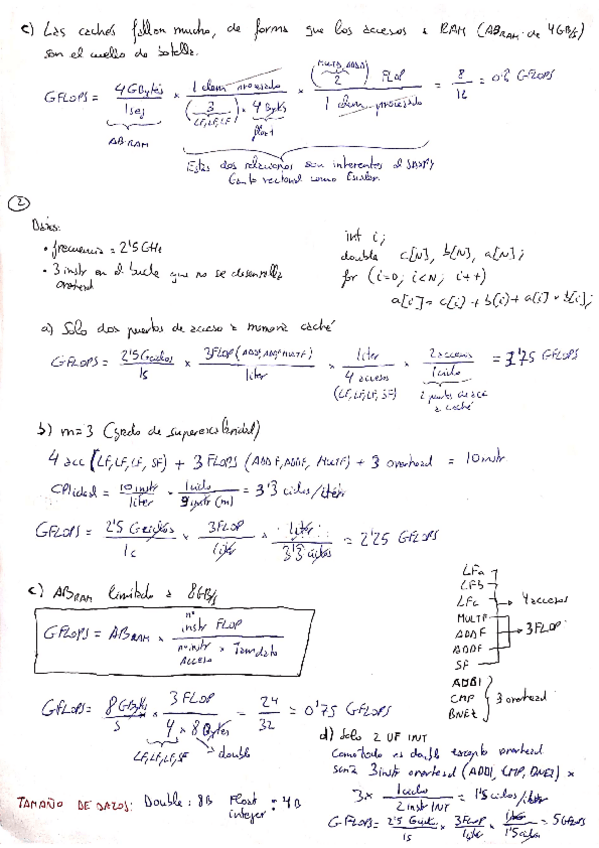 c) Las cachés fallan mucho, de forma que los accesos a RAM (ABRAM de 4GB/s)
son el cuello de botella.
GFLOPS = 4GBytes / 1seg × 1 elem procesado / (3 · 4 Bytes) × (MULTF, ADDF) 2 FLOP / 1 elem procesado = 8 / 12 = 0'6 GFLOPS
ABRAM LF,LF,SF float
Estas dos relaciones son inherentes al
tanto vectorial como escalar.
2
Datos:
• frecuencia = 2'5 GHz
• 3 instr en el bucle que no se desenrolla
overhead
int i;
double c[N], b[N], a[N];
for (i=0; i<N; i++)
a[i] = c[i] + b[i] + a[i] * b[i];
a) Solo dos puertos de acceso a memoria caché
GFLOPS = 2'5 Gciclos / 1s × 3FLOP (ADDF, ADDF, MULTF) / 1iter × 1iter / 4 accesos × 2 accesos / 1ciclo = 3'75 GFLOPS
(LF, LF, LF, SF) 2 puertos de acc
a caché
b) m=3 (grado de superescalaridad)
4 acc (LF, LF, LF, SF) + 3 FLOPS (ADDF, ADDF, MULTF) + 3 overhead = 10 instr
CPI ideal = 10 instr / 1iter × 1ciclo / 3 instr (m) = 3'3 ciclos/iter
GFLOPS = 2'5 Gciclos / 1s × 3FLOP / 1iter × 1iter / 3'3 ciclos = 2'25 GFLOPS
c) ABRAM limitado a 8GB/s
GFLOPS = ABRAM × nº instr FLOP / nº instr acceso × Tamdato
GFLOPS = 8 GBytes / s × 3 FLOP / 4 × 8 Bytes = 24 / 32 = 0'75 GFLOPS
LF, LF, LF, SF double
LFa
LFb
LFc → 4 accesos
MULTF
ADDF → 3 FLOP
ADDF
SF
ADDI
CMP 3 overhead
BNEZ
d) Solo 2 UF INT
Como todo es double excepto overhead
sería 3 instr overhead (ADDI, CMP, BNEZ) ×
3 × 1ciclo / 2 instr INT = 1'5 ciclos/iter
GFLOPS = 2'5 Gciclos / 1s × 3FLOP / 1iter × 1iter / 1'5 ciclos = 5 GFLOPS
TAMAÑO DE DATOS: Double: 8B Float integer : 4B